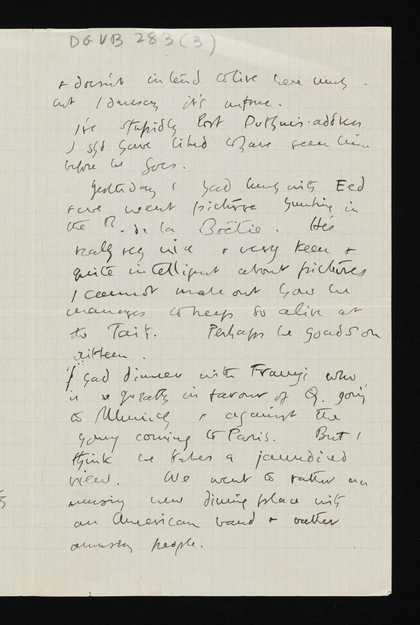 DGVB 283 (3)
+ doesn't intend to live here much.
but I daresay it's untrue.
I've stupidly lost Duthuit's address
I shd have liked to have seen him
before he goes.
Yesterday I had lunch with Ted
+ we went picture hunting in
the R. de la Boëtie. He's
really very nice + very keen +
quite intelligent about pictures
I cannot make out how he
manages to keep so alive at
the Tait. Perhaps he goads on
I had dinner with Francis who
is greatly in favour of Q. going
to Munich + against the
young coming to Paris. But I
think he takes a jaundiced
view. We went to rather an
amusing new dining place with
an American band + rather
amusing people.